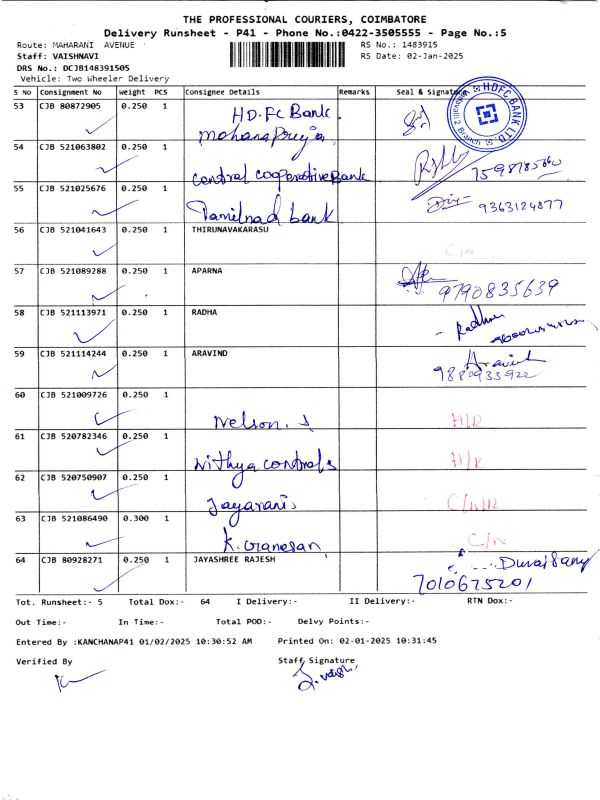 THE PROFESSIONAL COURIERS, COIMBATORE
Delivery Runsheet - P41 - Phone No.:0422-3505555 - Page No.:5
Route: MAHARANI AVENUE RS No.: 1483915
Staff: VAISHNAVI RS Date: 02-Jan-2025
DRS No.: DCJB148391505
Vehicle: Two Wheeler Delivery
S No Consignment No Weight PCS Consignee Details Remarks Seal & Signature
53 CJB 80872905 0.250 1 HDFC Bank. HDFC BANK LTD.
Mohanapriya
54 CJB 521063802 0.250 1
Central cooperative Bank
55 CJB 521025676 0.250 1
Tamilnad bank 9363124877
56 CJB 521041643 0.250 1 THIRUNAVAKARASU
C/N
57 CJB 521089288 0.250 1 APARNA
9790835639
58 CJB 521113971 0.250 1 RADHA
- Radha
59 CJB 521114244 0.250 1 ARAVIND Aravind
9880933922
60 CJB 521009726 0.250 1
Nelson. J
61 CJB 520782346 0.250 1
Nithya controls
62 CJB 520750907 0.250 1
Jayarani C/N/R
63 CJB 521086490 0.300 1
K. Ganesan C/N
64 CJB 80928271 0.250 1 JAYASHREE RAJESH Duraisamy
7010675201
Tot. Runsheet:- 5 Total Dox:- 64 I Delivery:- II Delivery:- RTN Dox:-
Out Time:- In Time:- Total POD:- Delvy Points:-
Entered By :KANCHANAP41 01/02/2025 10:30:52 AM Printed On: 02-01-2025 10:31:45
Verified By Staff Signature